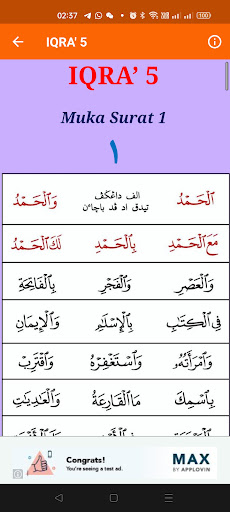 02:37
IQRA' 5
IQRA' 5
Muka Surat 1
١
اَلْحَمْدُ
الف داعݢڤ
تيدق اد قد باچاءن
وَالْحَمْدُ
مَعَ الْحَمْدِ
بِالْحَمْدِ
لَكَ الْحَمْدُ
وَالْعَصْرِ
وَالْفَجْرِ
بِالْفَاتِحَةِ
فِي الْكِتَابِ
بِالْإِسْلَامِ
وَالْإِيمَانِ
وَامْرَأَتُهُ
وَاسْتَغْفِرْهُ
وَاقْتَرِبْ
بِاسْمِكَ
مَا الْقَارِعَةُ
وَالْعَادِيَاتِ
Congrats!
You're seeing a test ad.
MAX
BY APPLOVIN